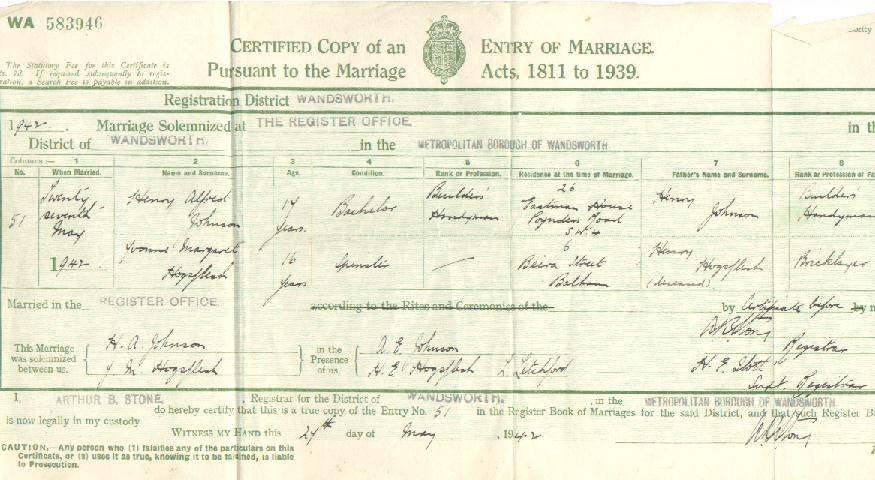 WA 583946
CERTIFIED COPY of an ENTRY OF MARRIAGE.
Pursuant to the Marriage Acts, 1811 to 1939.
The Statutory Fee for this Certificate is
2d. If required subsequently to regis-
ration, a Search Fee is payable in addition.
Registration District WANDSWORTH.
1942. Marriage Solemnized at THE REGISTER OFFICE in th
District of WANDSWORTH. in the METROPOLITAN BOROUGH OF WANDSWORTH
Columns :— 1 2 3 4 5 6 7 8
No. When Married. Name and Surname. Age. Condition. Rank or Profession. Residence at the time of Marriage. Father's Name and Surname. Rank or Profession of Fa
51 Twenty seventh May 1942 Henry Alfred Johnson 17 years Bachelor Builders' Handyman 26 Eastman House Poynders Road S.W.4 Henry Johnson Builders' Handyman
Yvonne Margaret Hogsflesh 16 years Spinster — 6 Beira Street Balham Henry Hogsflesh (deceased) Bricklayer
Married in the REGISTER OFFICE. according to the Rites and Ceremonies of the by Certificate before by
This Marriage was solemnized between us, H. A. Johnson
Y. M. Hogsflesh
in the Presence of us, A. E. Johnson
H. E. Hogsflesh L. Letchford
Registrar
Supt. Registrar
I, ARTHUR B. STONE, Registrar for the District of WANDSWORTH. , in the METROPOLITAN BOROUGH OF WANDSWORTH.
do hereby certify that this is a true copy of the Entry No. 51 in the Register Book of Marriages for the said District, and that such Register B
is now legally in my custody.
WITNESS MY HAND this 27th day of May , 1942
CAUTION.—Any person who (1) falsifies any of the particulars on this
Certificate, or (2) uses it as true, knowing it to be falsified, is liable
to Prosecution.